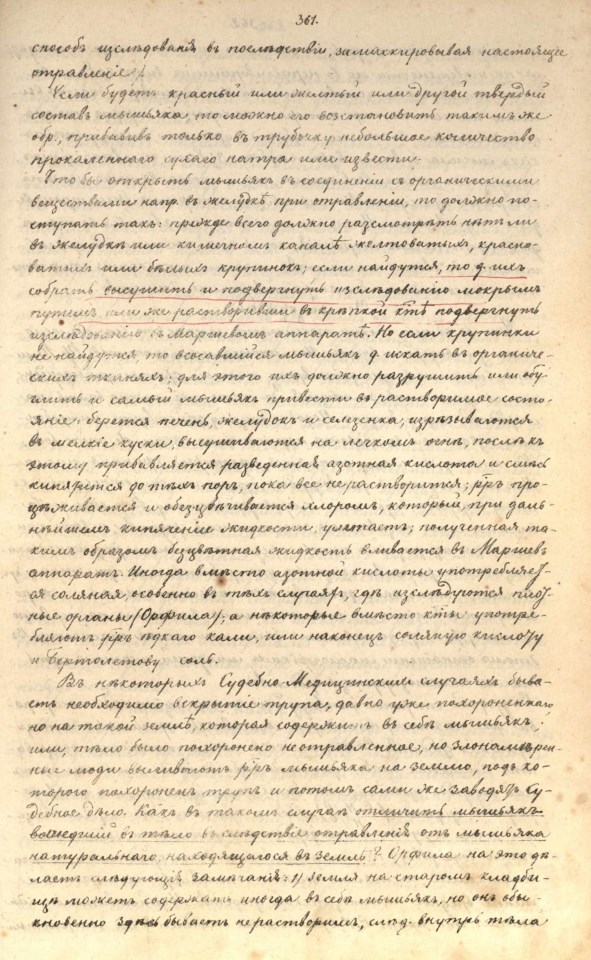 361.
способъ изслѣдованія въ послѣдствіи, замаскировывая настоящее
отравленіе).
Если будетъ красный или желтый или другой твердый
составъ мышьяка то можно его возстановить такимъ же
обр., прибавивъ только въ трубочку небольшое количество
прокаленнаго сухаго натра или извести.
Что бы открыть мышьякъ въ соединеніи съ органическими
веществами напр. въ желудкѣ при отравленіи, то должно по-
ступать такъ: прежде всего должно разсмотрѣть нѣтъ ли
въ желудкѣ или кишечномъ каналѣ желтоватыхъ, красно-
ватыхъ или бѣлыхъ крупинокъ; если найдутся, то д. ихъ
собрать высушить и подвергнуть изслѣдованію мокрымъ
путемъ, или же растворивши въ крѣпкой ктѣ подвергнуть
изслѣдованію въ Маршевомъ аппаратѣ. Но если крупинки
не найдутся, то всосавшійся мышьякъ д. искать въ органиче-
скихъ тканяхъ; для этого ихъ должно разрушить или обу-
глить и самый мышьякъ привести въ растворимое состо-
яніе: берется печень, желудокъ и селезенка, изрѣзываются
въ мелкіе куски, высушиваются на легкомъ огнѣ, послѣ къ
этому прибавляется разведенная азотная кислота и смѣсь
кипятится до тѣхъ поръ, пока все не растворится; рръ про-
цѣживается и обезцвѣчивается хлоромъ, который, при даль-
нѣйшемъ кипяченіе жидкости улетаетъ; полученная та-
кимъ образомъ безцвѣтная жидкость вливается въ Маршевъ
аппаратъ. Иногда вмѣсто азотной кислоты употребляет-
ся соляная, особенно въ тѣхъ случаях, гдѣ изслѣдуются плот-
ные органы (Орфила); а нѣкоторые вмѣсто кты употре-
бляютъ рръ ѣдкаго кали, или наконецъ соляную кислоту
и Бертолетову соль.
Въ нѣкоторыхъ Судебно Медицинскихъ случаяхъ быва-
етъ необходимо вскрытіе трупа, давно уже похороненнаго
но на такой землѣ, которая содержитъ въ себѣ мышьякъ;
или, тѣло было похоронено неотравленное, но злонамѣрен-
ные люди выливаютъ рръ мышьяка на землю, подъ ко-
торого похороненъ трупъ и потомъ сами же заводятъ Су-
дебное дѣло. Какъ въ такомъ случаѣ отличить мышьякъ
вошедшій въ тѣло вслѣдствіе отравленія отъ мышьяка
натуральнаго, находящагося въ землѣ? Орфила на это дѣ-
лаетъ слѣдующія замѣчанія: 1) земля на старомъ кладби-
щѣ можетъ содержать иногда въ себѣ мышьякъ, но онъ обы-
кновенно здѣсь бываетъ не растворимъ, слѣд. внутрь тѣла